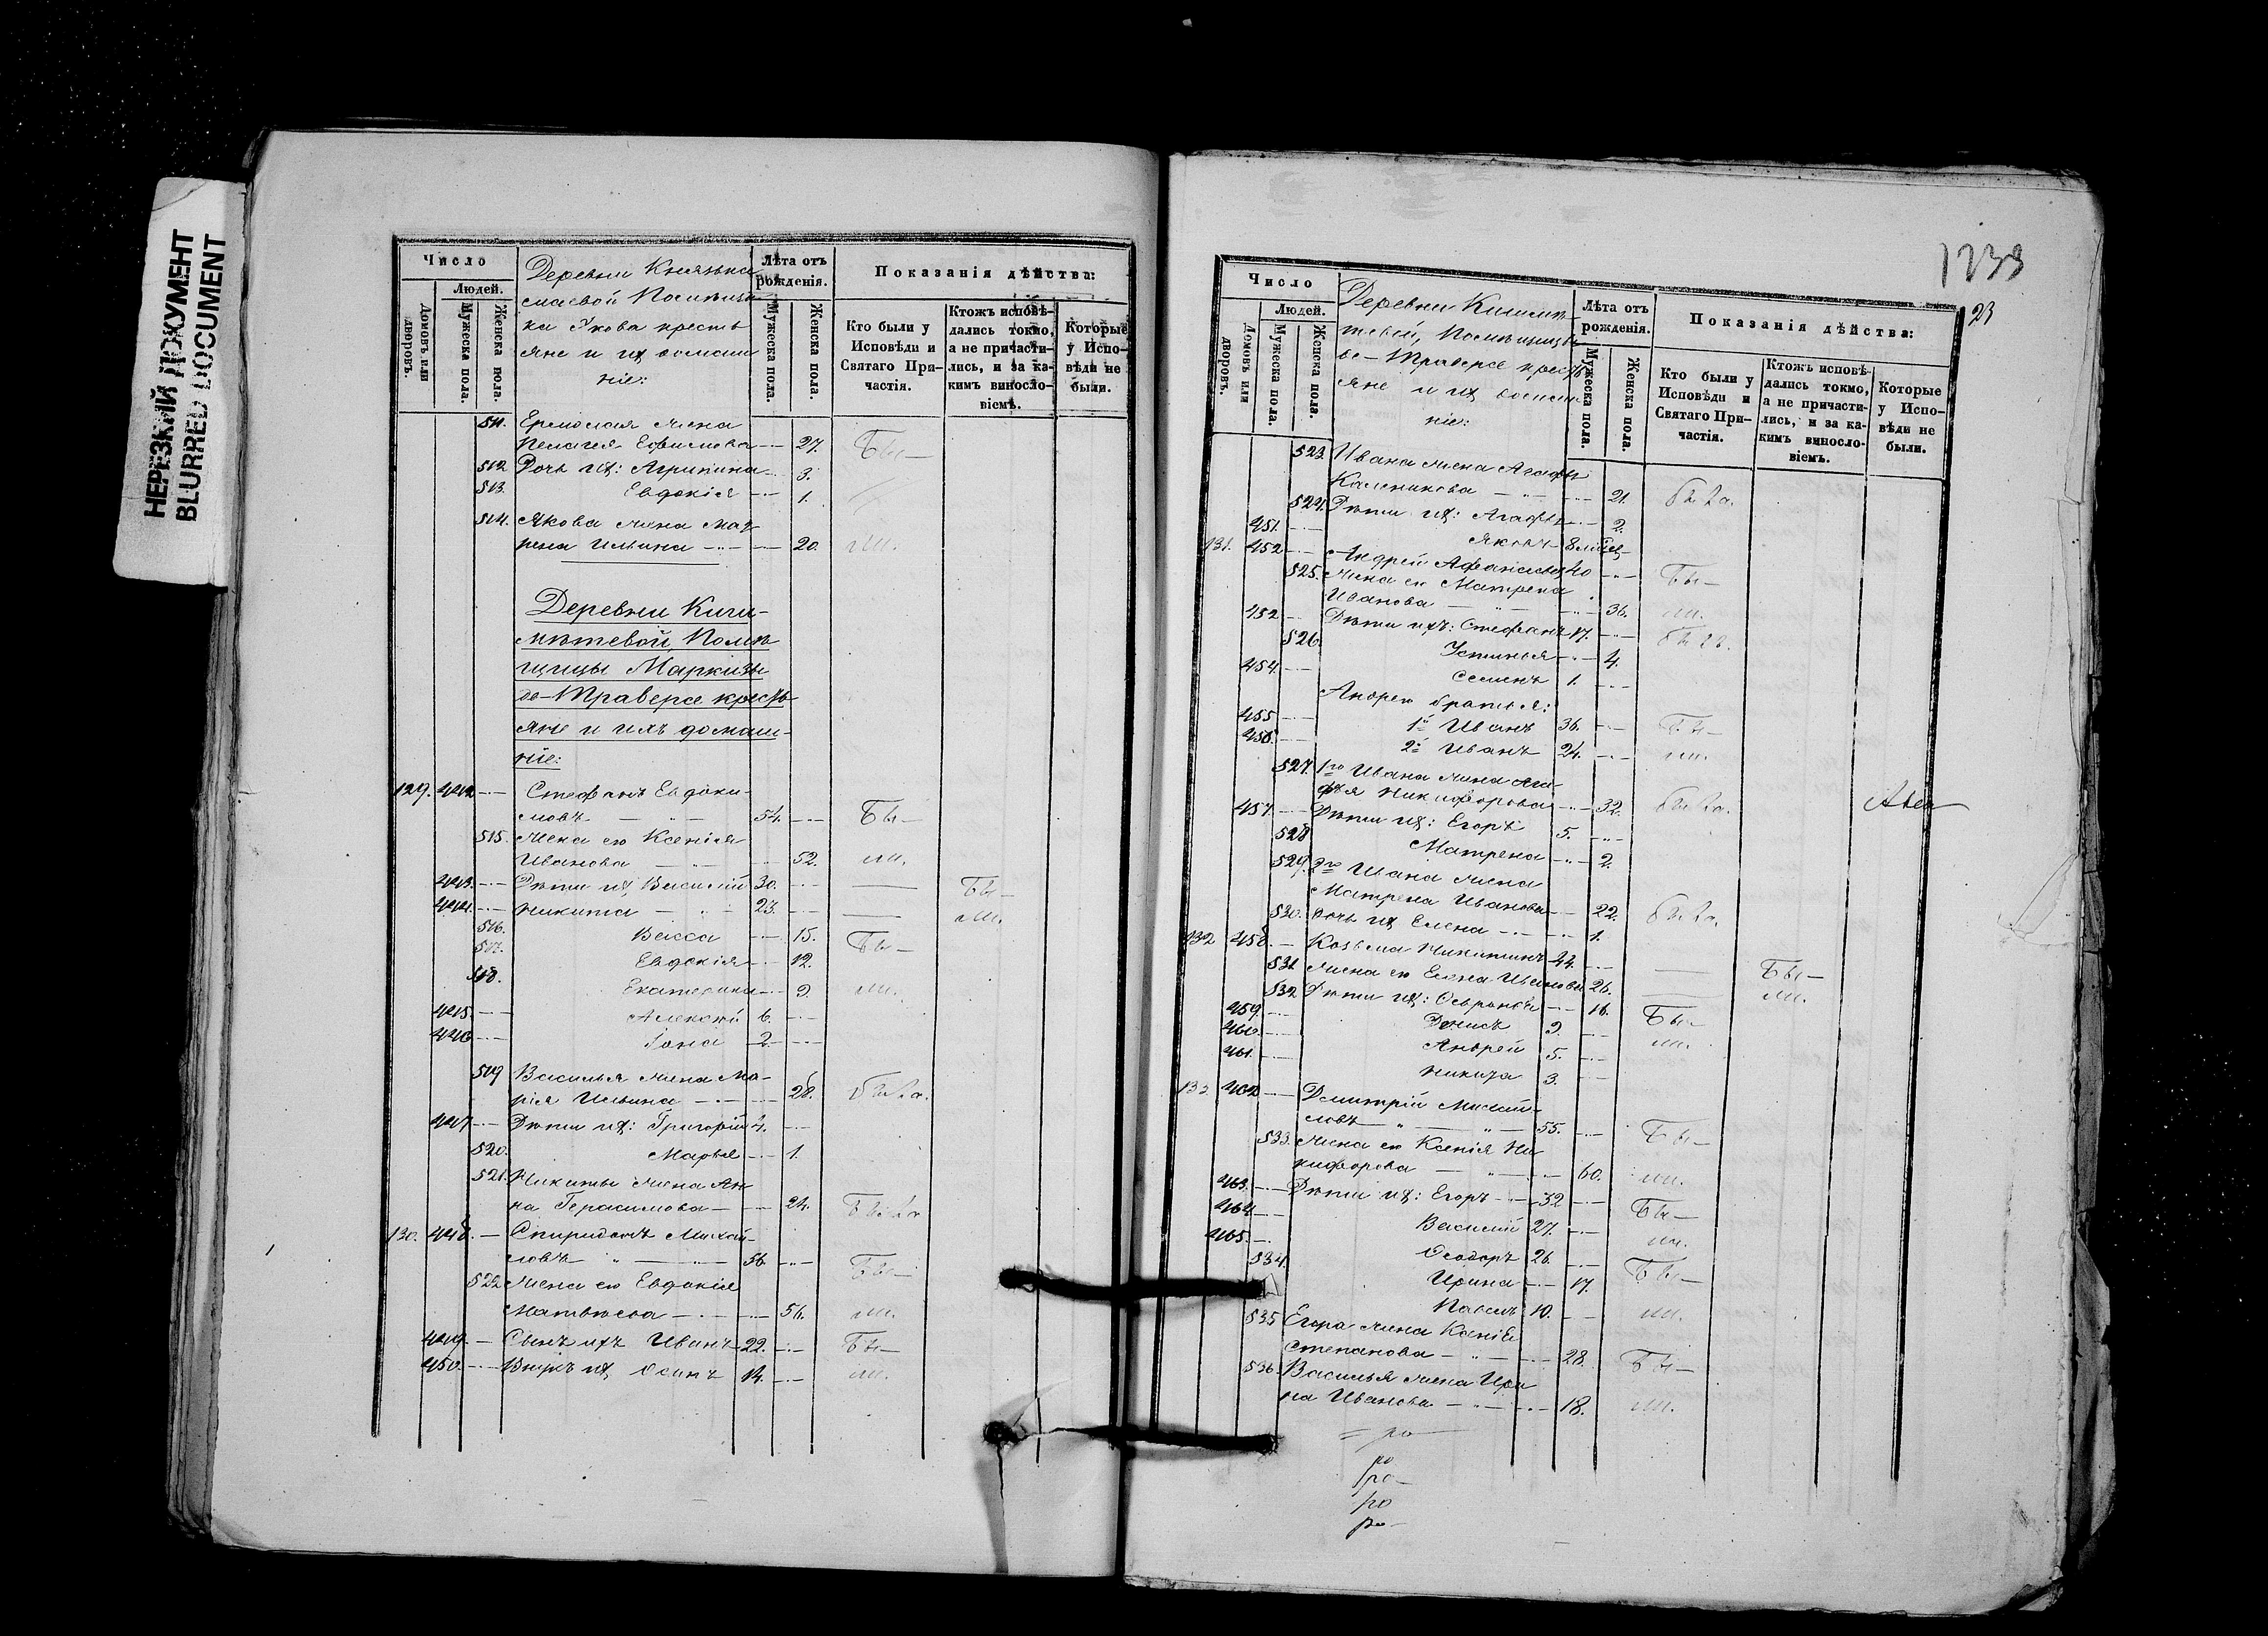 НЕРЕЗКИЙ ДОКУМЕНТ
BLURRED DOCUMENT
Число
Людей.
Домовъ или дворовъ.
Мужеска пола.
Женска пола.
Деревни
Помѣщи-
ка Якова кресть
яне и их домаш
ніе:
Лѣта отъ рожденія.
Мужеска пола.
Женска пола.
Показанія дѣйства:
Кто были у Исповѣди и Святаго При-частія.
Ктожъ исповѣ-дались токмо, а не причасти-лись, и за ка-кимъ винословіемъ.
Которые у Испо-вѣди не были.
511. Ермолая жена
Пелагея Ефимова 27. Бы-
512 Дочь их: Агрипина 3.
513. Евдокія 1.
514. Якова жена Мат
рена Ильина 20. ли.
Деревни Кичи-
мѣтевой Помѣ
щицы Маркизы
де-Траверсе кресть
яне и ихъ домаш-
ніе:
129. 442 Стефанъ Евдоки-
мовъ 54. Бы-
515. Жена его Ксенія
Иванова 52. ли.
443. Дѣти их Василій 30. Бы-
444. Никита 23. ли.
516. Васса 15. Бы-
517. Евдокія 12.
518. Екатерина 9. ли.
445. Алексѣй 6.
446 Іона 2.
519 Василья жена Ма-
рія Ильина 28. была.
447 Дѣти их: Григорій 4.
520. Марья 1.
521. Никиты жена Ан
на Герасимова 24. Была
130. 448. Спиридонъ Михай-
ловъ 56. Бы-
522 Жена его Евдокія
Матвѣева 56. ли.
449. Сынъ ихъ Иванъ 22. Бы-
450. Внукъ их Осипъ 14. ли.
1233
23
Число
Людей.
Домовъ или дворовъ.
Мужеска пола.
Женска пола.
Деревни Кичимѣ-
тевой, Помѣщицы
де-Траверсе кресть
яне и их домаш
ніе:
Лѣта отъ рожденія.
Мужеска пола.
Женска пола.
Показанія дѣйства:
Кто были у Исповѣди и Святаго При-частія.
Ктожъ исповѣ-дались токмо, а не причасти-лись, и за ка-кимъ винословіемъ.
Которые у Испо-вѣди не были.
523. Ивана жена Агафья
Калиникова 21. была.
524. Дѣти их: Агафья 2.
451. Яковъ
131. 452 Андрей Афанасьевъ 40 Бы-
525. Жена его Матрена
Иванова 36. ли.
452 Дѣти ихъ: Стефанъ 17.
526. Устинья 4.
454. Семенъ 1.
Андрею братья:
455 1й Иванъ 36. Бы-
456. 2й Иванъ 24. ли.
527. 1го Ивана жена Ага-
фья Никифорова 32. была.
457. Дѣти их: Егоръ 5.
528 Матрена 2.
529. 2го Ивана жена
Матрена Иванова 22. была.
530. Дочь их Елена 1.
132 458. Козьма Никитинъ 44. Бы-
531. Жена его Елена Иванова 26. ли.
532 Дѣти их: 16. Бы-
459. Денисъ 9. ли.
460. Андрей 5.
461. Никита 3.
133 462 Дмитрій Михай-
ловъ 55. Бы-
533. Жена его Ксенія Ни
кифорова 60. ли.
463. Дѣти их: Егоръ 32 Бы-
464 Василій 27. ли.
465. Ѳеодоръ 26.
534. Ирина 17. Бы-
Павелъ 10. ли.
535 Егора жена Ксенія
Степанова 28. Бы-
536. Василья жена Ири
на Иванова 18. ли.